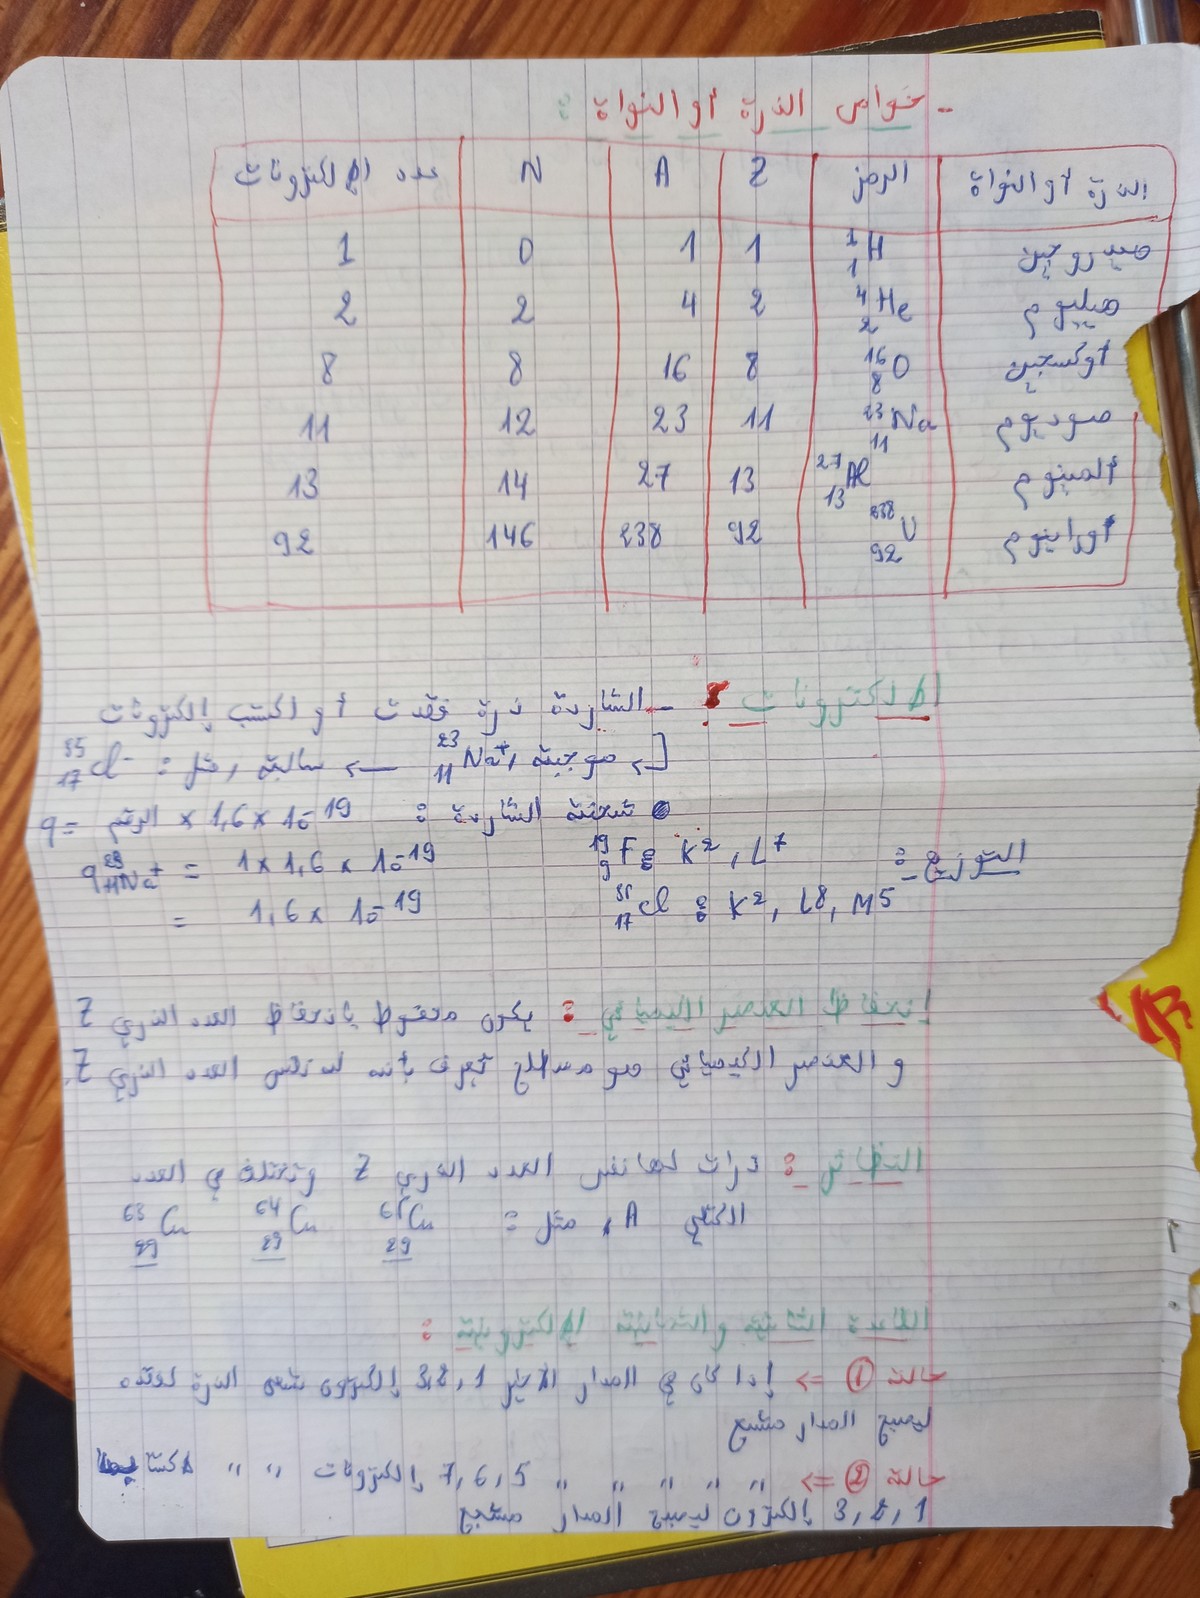 - خواص الذرة أو النواة :
الذرة أو النواة الرمز Z A N عدد الإلكترونات
هيدروجين ¹₁H 1 1 0 1
هيليوم ⁴₂He 2 4 2 2
أوكسجين ¹⁶₈O 8 16 8 8
صوديوم ²³₁₁Na 11 23 12 11
ألمنيوم ²⁷₁₃Al 13 27 14 13
أورانيوم ²³⁸₉₂U 92 238 146 92
الإلكترونات : - الشاردة ذرة فقدت أو اكتسب إلكترونات
موجبة ²³₁₁Na⁺, → سالبة , مثل : ³⁵₁₇Cl⁻
شحنة الشاردة : q = الرقم × 1,6 × 10⁻¹⁹
التوزيع : ¹⁹₉F : K², L⁷
q ²³₁₁Na⁺ = 1 × 1,6 × 10⁻¹⁹
³⁵₁₇Cl : K², L8, M5
= 1,6 × 10⁻¹⁹
إنحفاظ العنصر الكيميائي : يكون محفوظ بانحفاظ العدد الذري Z
و العنصر الكيميائي هو مصطلح تعرف بأنه العدد الذري Z,
النظائر : ذرات لها نفس العدد الذري Z وتختلف في العدد
الكتلي A , مثل : ⁶⁵₂₉Cu ⁶⁴₂₉Cu ⁶³₂₉Cu
القاعدة الثنائية و الثمانية الإلكترونية :
حالة ① => إذا كان في المدار الأخير 3,2,1 إلكترون الذرة لفقده
ليصبح المدار مشبع
حالة ② => " " " " " 7,6,5 إلكترونات " " لاكتساب
3,2,1 إلكترون ليصبح المدار مشبع